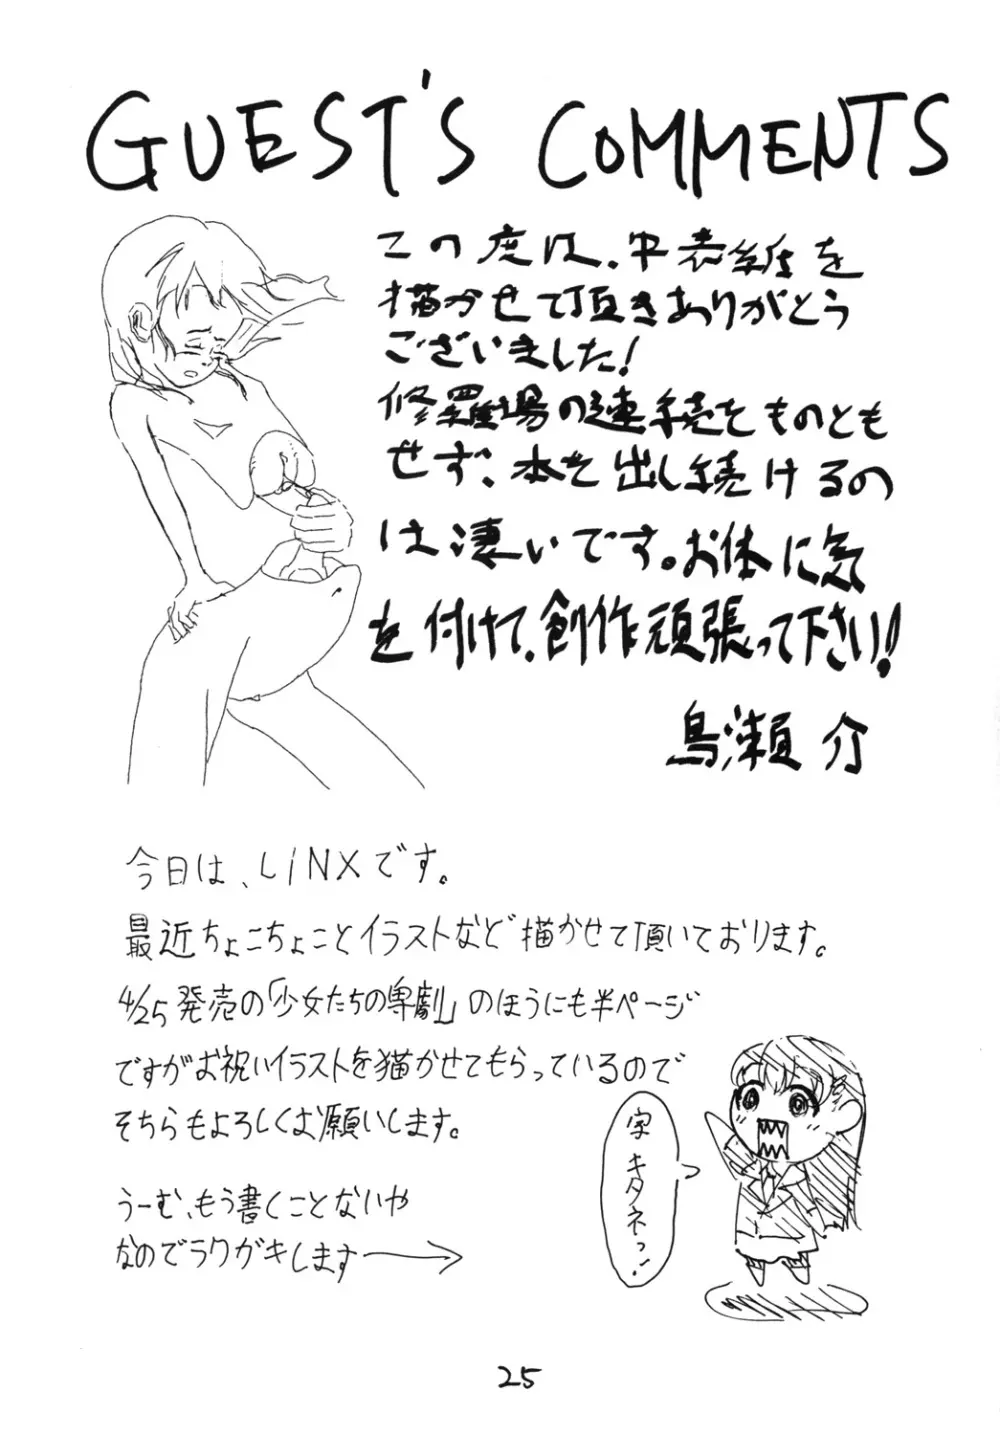 GUEST'S COMMENTS
この度は、中表紙を
描かせて頂きありがとう
ございました!
修羅場の連続をものとも
せず、本を出し続けるの
は凄いです。お体に気
を付けて、創作頑張って下さい!!
鳥瀬 介
今日は、LiNXです。
最近ちょこちょことイラストなど描かせて頂いております。
4/25発売の「少女たちの卑劇」のほうにも半ページ
ですがお祝いイラストを描かせてもらっているので
そちらもよろしくお願いします。
うーむ、もう書くことないや
なのでラクガキします→
字キタネっ!
25